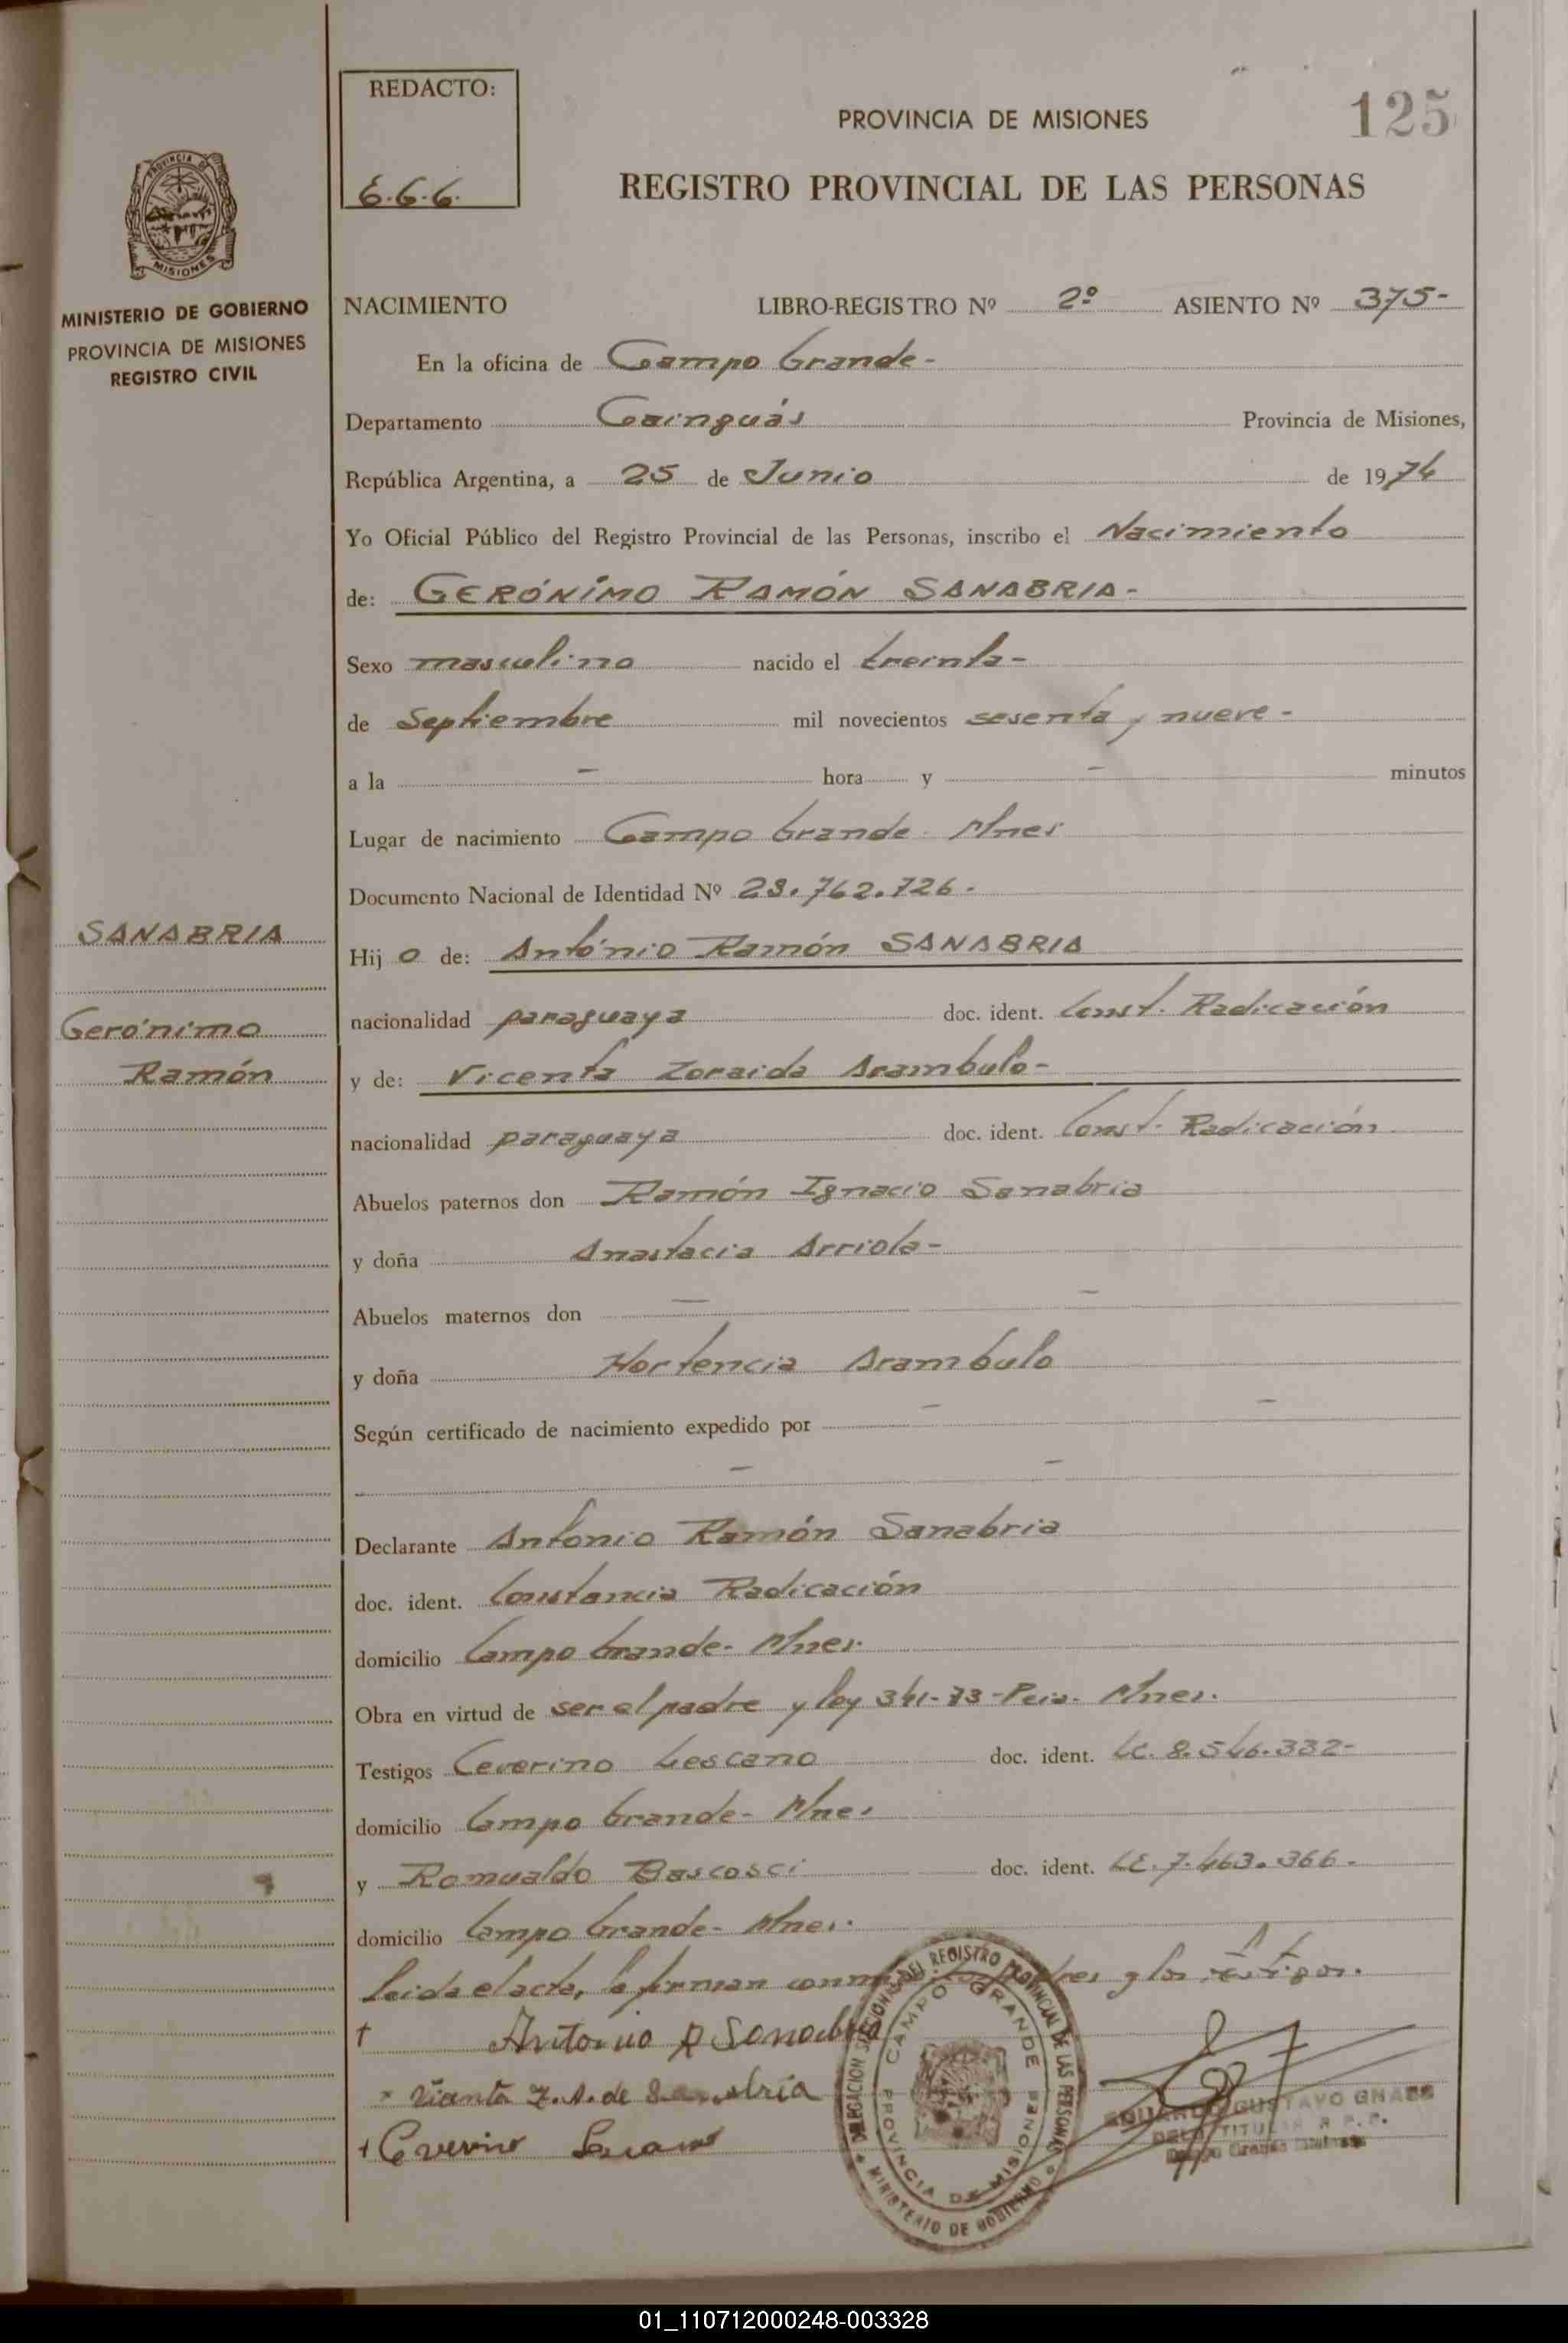 REDACTO:
6.6.6.
125
PROVINCIA DE MISIONES
REGISTRO PROVINCIAL DE LAS PERSONAS
PROVINCIA DE
MISIONES
MINISTERIO DE GOBIERNO
PROVINCIA DE MISIONES
REGISTRO CIVIL
NACIMIENTO LIBRO-REGISTRO Nº 2º ASIENTO Nº 375-
En la oficina de Campo Grande-
Departamento Cainguás Provincia de Misiones,
República Argentina, a 25 de Junio de 1974
Yo Oficial Público del Registro Provincial de las Personas, inscribo el Nacimiento
de: GERÓNIMO RAMÓN SANABRIA-
Sexo masculino nacido el treinta-
de Septiembre mil novecientos sesenta y nueve-
a la - hora y - minutos
Lugar de nacimiento Campo Grande Mnes
Documento Nacional de Identidad Nº 23.762.726.
SANABRIA
Gerónimo
Ramón
Hij o de: António Ramón SANABRIA
nacionalidad paraguaya doc. ident. Const. Radicación
y de: Vicenta Zoraida Arambulo-
nacionalidad paraguaya doc. ident. Const. Radicación
Abuelos paternos don Ramón Ignacio Sanabria
y doña Anastacia Arriola-
Abuelos maternos don - -
y doña Hortencia Arambulo
Según certificado de nacimiento expedido por - -
- -
Declarante Antonio Ramón Sanabria
doc. ident. Constancia Radicación
domicilio Campo Grande- Mnes.
Obra en virtud de ser el padre y ley 341-73-Pcia. Mnes.
Testigos Ceverino Lescano doc. ident. LE. 8.546.332-
domicilio Campo Grande- Mnes
y Romualdo Bascosci doc. ident. LE. 7.463.366.
domicilio Campo Grande- Mnes.
Leida el acta, la firman y los testigos.
Antonio R Sanabria
Z.A. de Sanabria
Ceverino Lescano
DELEGACION DEL REGISTRO PROVINCIAL DE LAS PERSONAS
MINISTERIO DE GOBIERNO
CAMPO GRANDE
PROVINCIA DE MISIONES
GUSTAVO GNASS
TITULAR R.P.P.
01_110712000248-003328